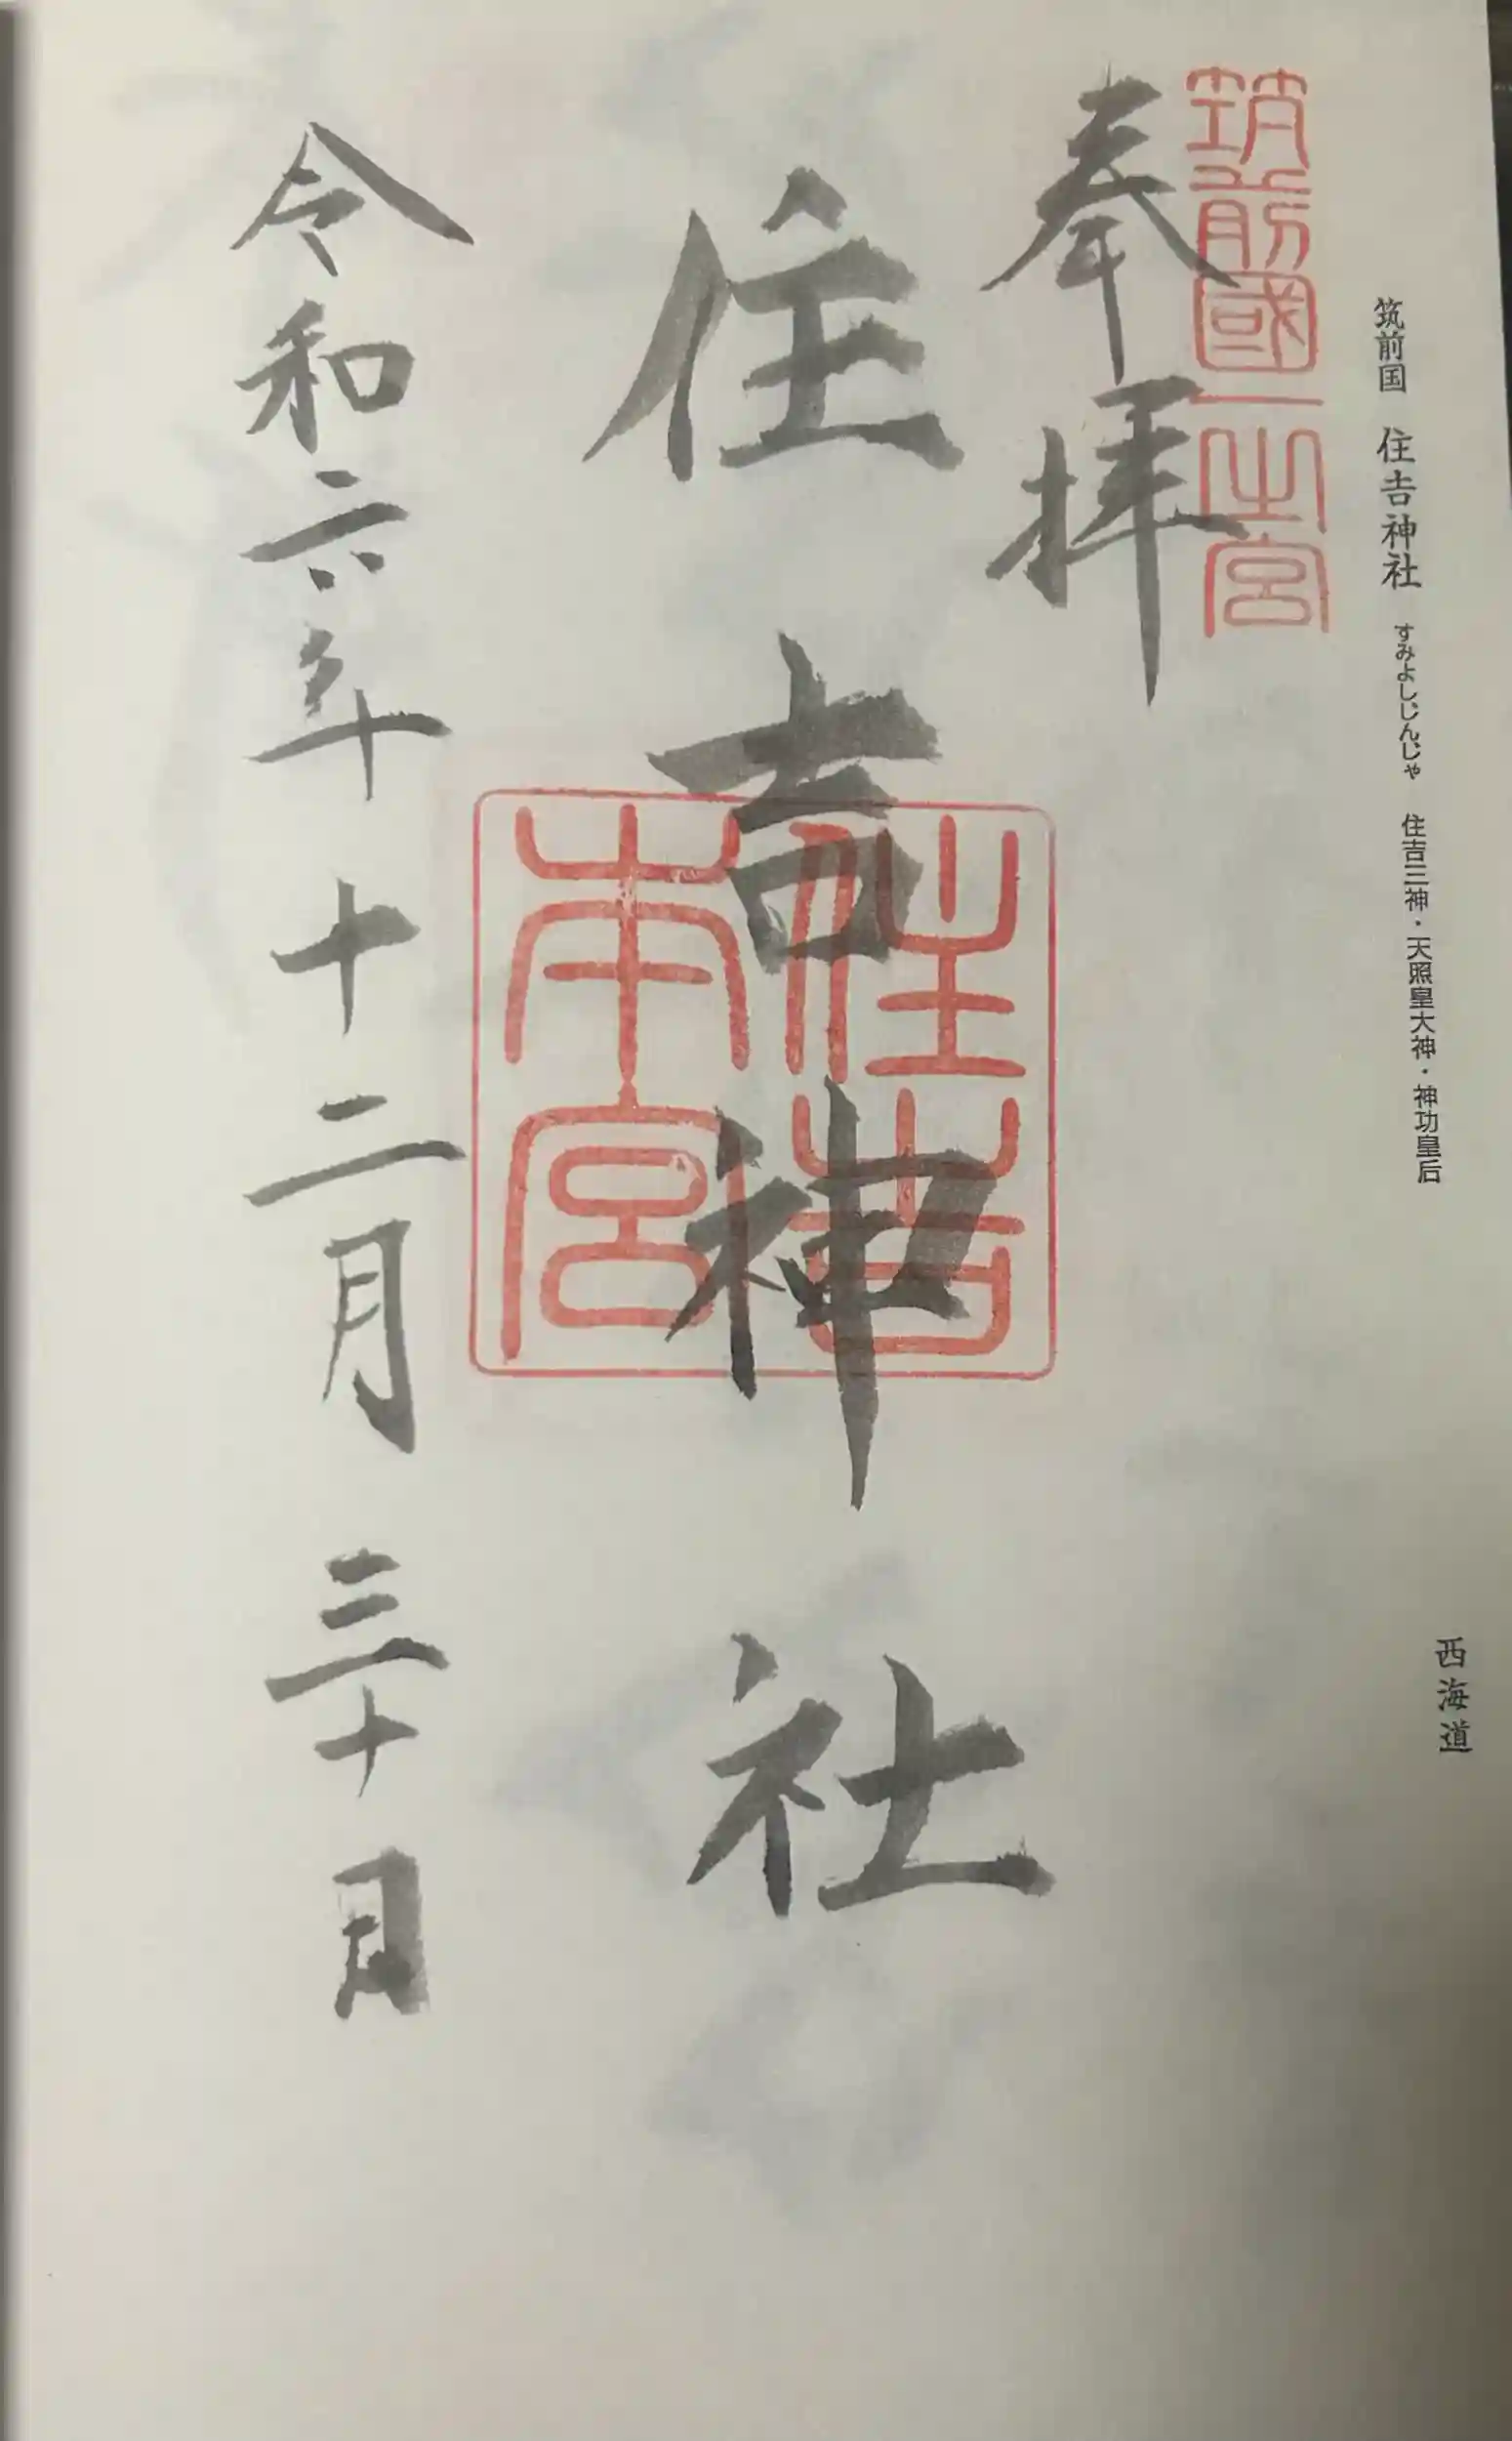 筑前国 住吉神社 すみよしじんじゃ 住吉三神・天照皇大神・神功皇后
西海道
筑前國一之宮
奉拝
住吉神社
住吉本宮
令和六年十二月三十日